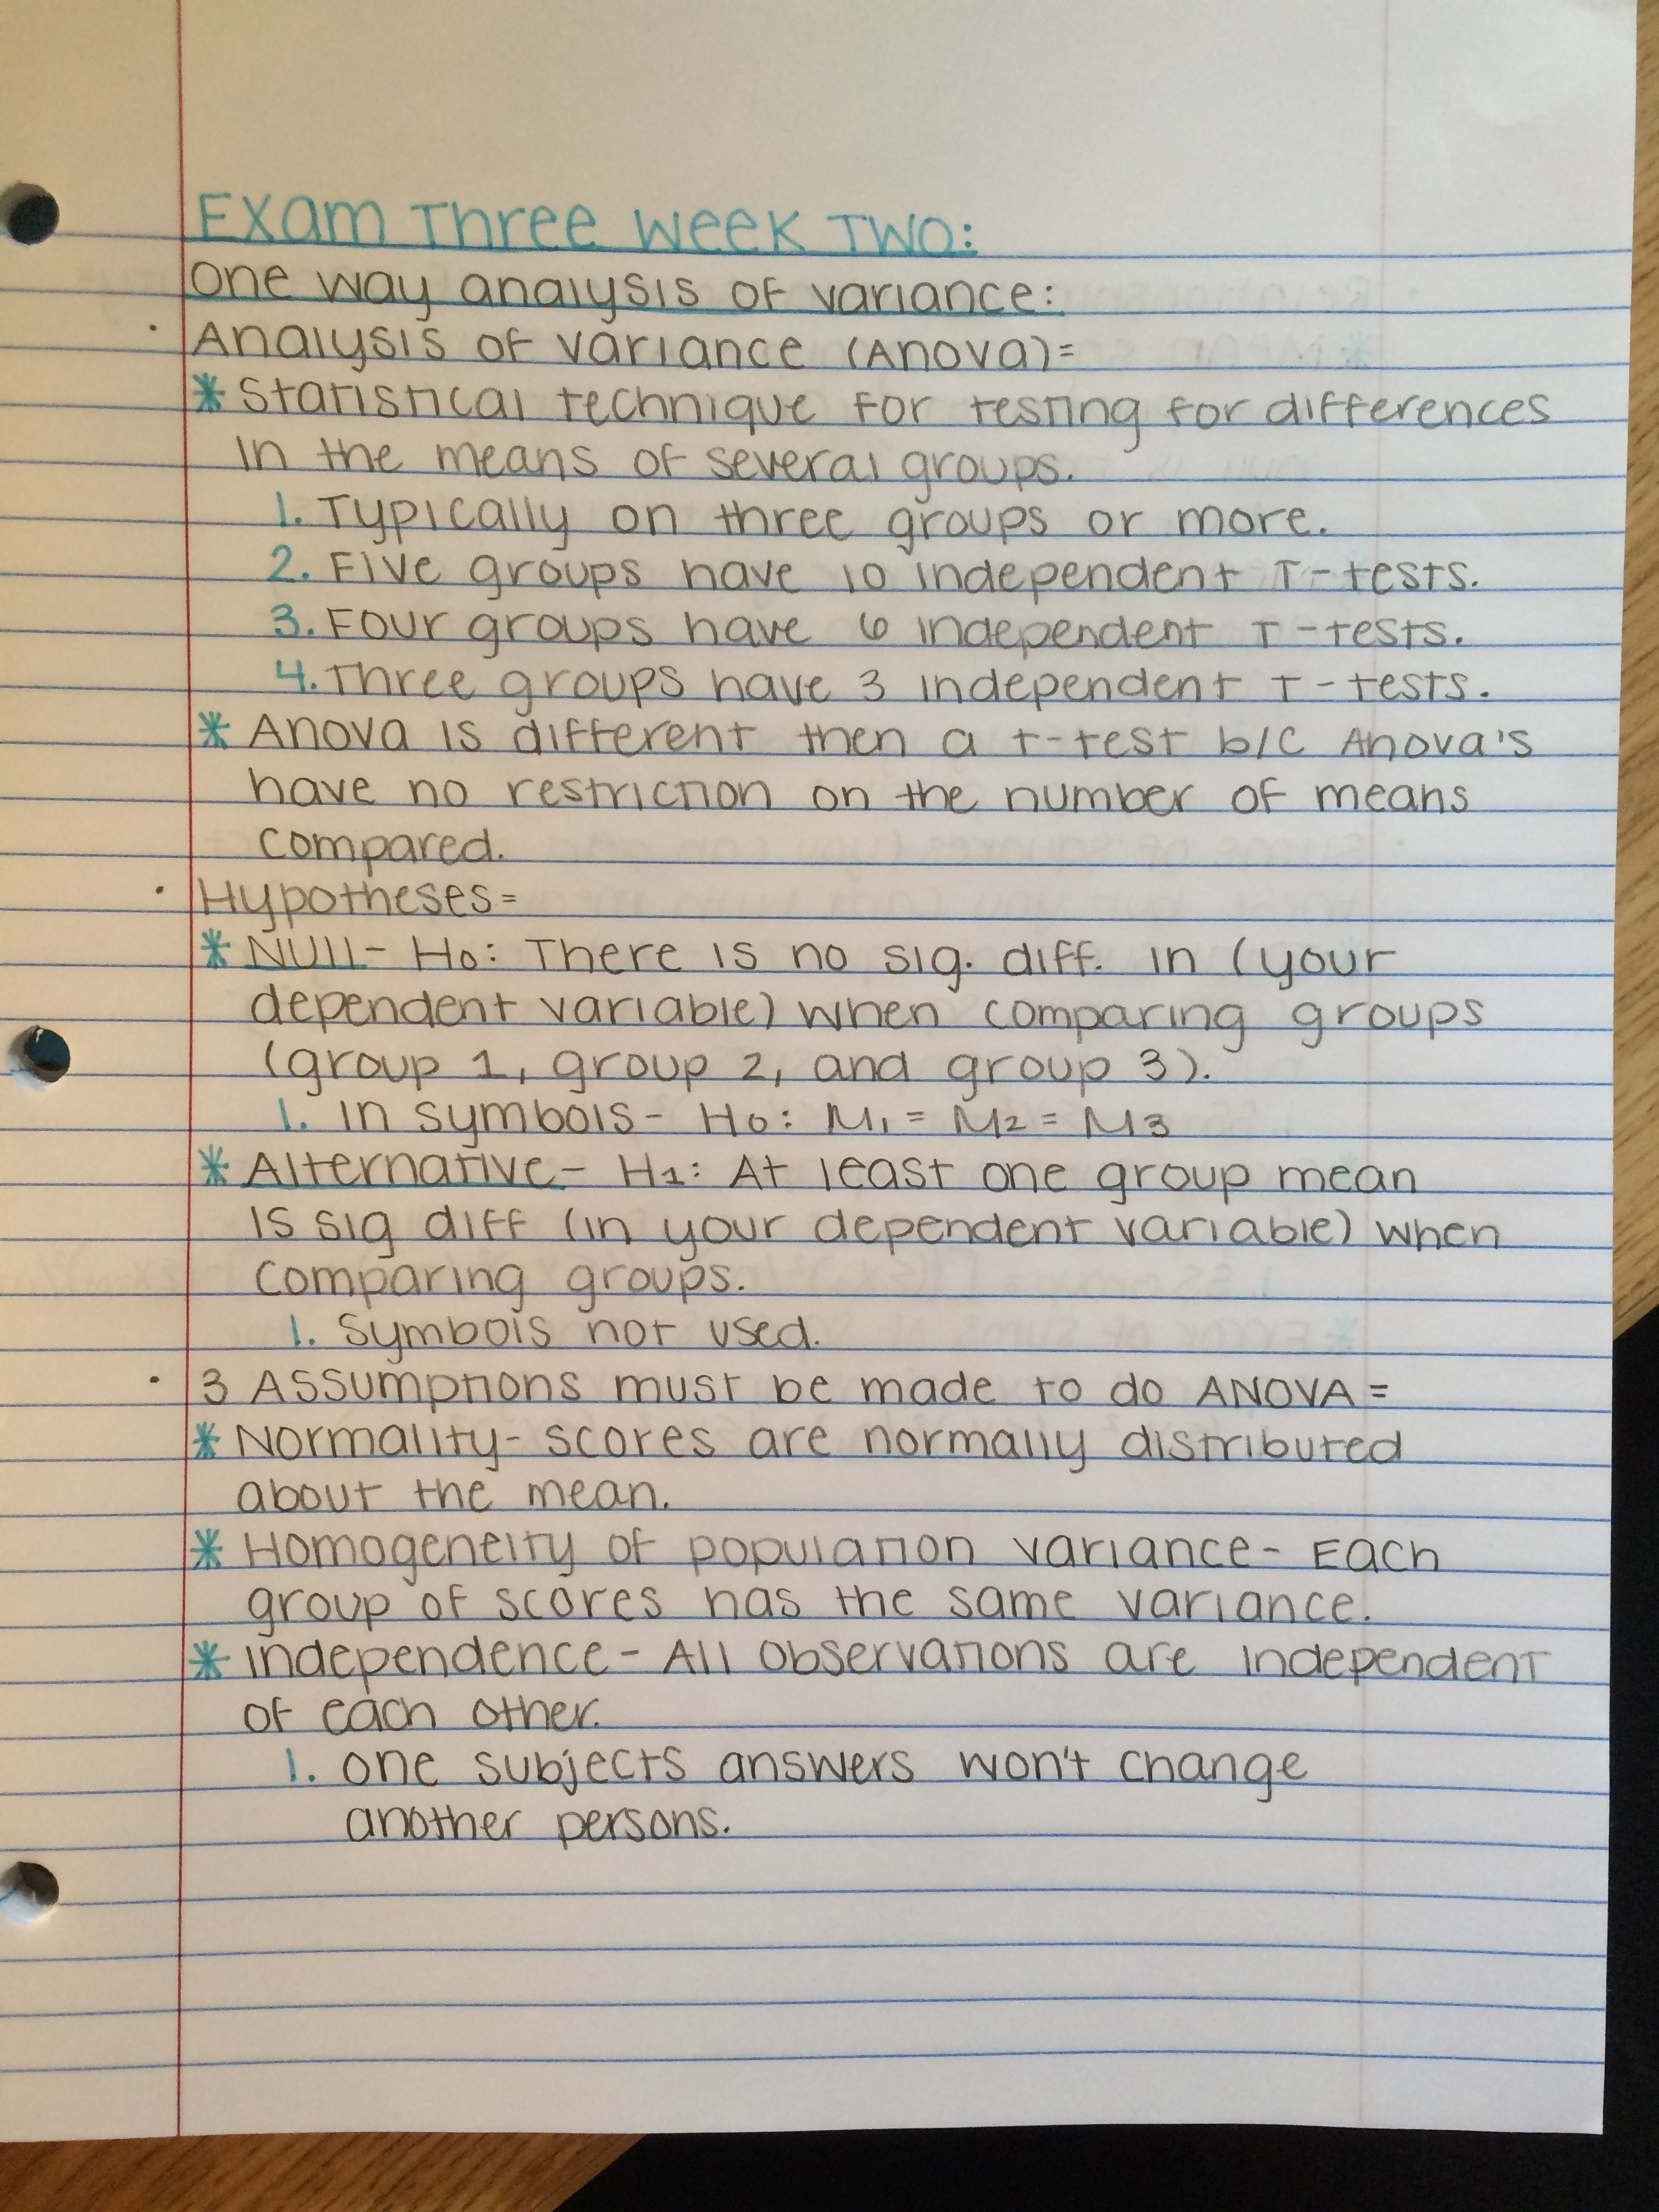 Exam Three Week Two:
One way analysis of variance:
· Analysis of variance (Anova)=
* Statistical technique for testing for differences
in the means of several groups.
1. Typically on three groups or more.
2. Five groups have 10 independent T-tests.
3. Four groups have 6 independent T-tests.
4. Three groups have 3 independent T-tests.
* Anova is different then a t-test b/c Anova's
have no restriction on the number of means
compared.
· Hypotheses=
* Null- H0: There is no sig. diff. in (your
dependent variable) when comparing groups
(group 1, group 2, and group 3).
1. In symbols- H0: M1 = M2 = M3
* Alternative- H1: At least one group mean
is sig diff (in your dependent variable) when
comparing groups.
1. Symbols not used.
· 3 Assumptions must be made to do ANOVA=
* Normality- scores are normally distributed
about the mean.
* Homogeneity of population variance- Each
group of scores has the same variance.
* Independence- All observations are independent
of each other.
1. One subjects answers won't change
another persons.